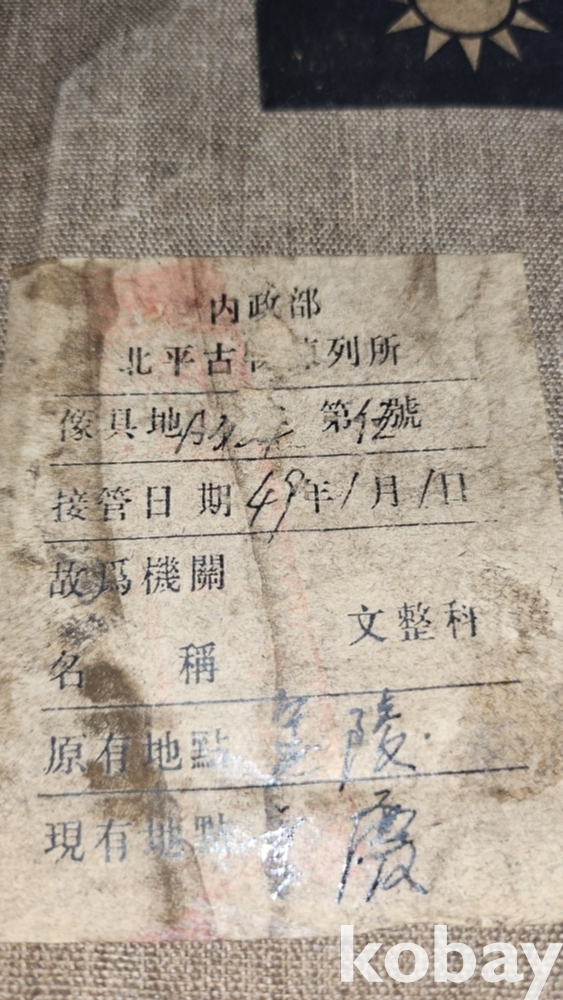 內政部
北平古 列所
傢具地 第伍號
接管日期49年1月1日
故爲機關
文整科
名稱
原有地點 陵
現有地點 慶
kobay